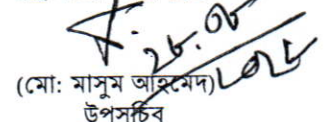 ২৮.০৮
(মো: মাসুম আহমেদ)
উপসচিব